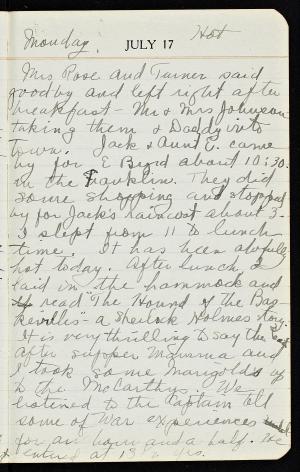 Monday. JULY 17 Hot
Mrs Rose and Turner said
goodby and left right after
breakfast - Mr & Mrs Johnson
taking them & Daddy into
town. Jack & Aunt E. came
by for E Byrd about 10:30.
in the Franklin. They did
some shopping and stopped
by for Jack's raincoat about 3-
I slept from 11 to lunch
time. It has been awfully
hot today. After lunch I
laid in the hammock and
read "The Hound of the Bas-
kervilles" - a Sherlock Holmes story.
It is very thrilling to say the least
after supper Mamma and
I took some Marigolds up
to the McCarthys. We
listened to the Captain tell
some of War experiences
for an hour and a half. He
entered at 13 ½ yrs.